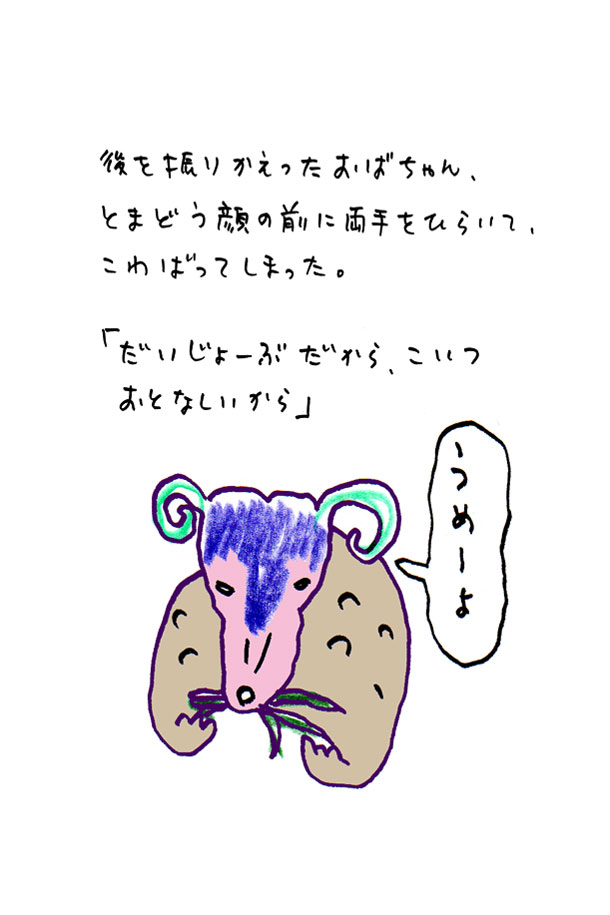 後を振りかえったおばちゃん、
とまどう顔の前に両手をひらいて、
こわばってしまった。
「だいじょーぶだから、こいつ
おとなしいから」
うめーよ